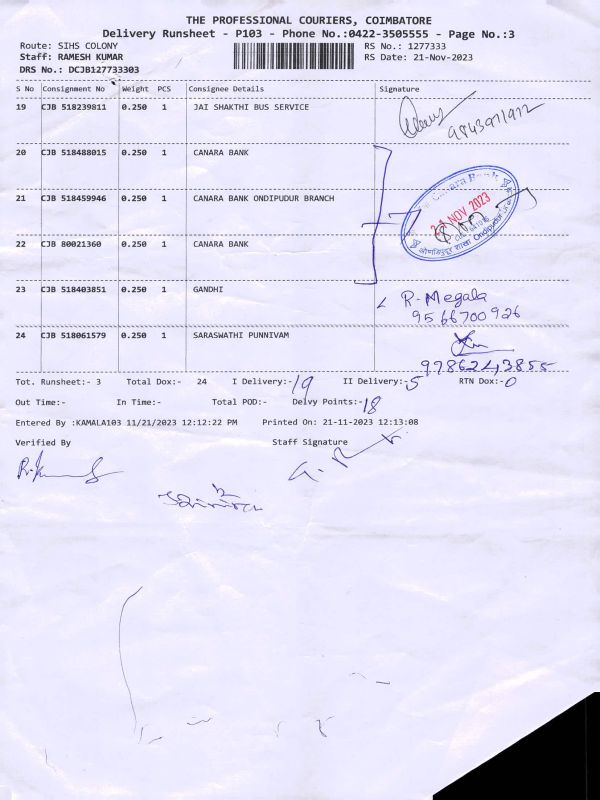 THE PROFESSIONAL COURIERS, COIMBATORE
Delivery Runsheet - P103 - Phone No.:0422-3505555 - Page No.:3
Route: SIHS COLONY
RS No.: 1277333
Staff: RAMESH KUMAR
RS Date: 21-Nov-2023
DRS No.: DCJB127733303
S No Consignment No Weight PCS Consignee Details Signature
19 CJB 518239811 0.250 1 JAI SHAKTHI BUS SERVICE
9843971972
20 CJB 518488015 0.250 1 CANARA BANK
21 CJB 518459946 0.250 1 CANARA BANK ONDIPUDUR BRANCH
Canara Bank
21 NOV 2023
Ondipudur
22 CJB 80021360 0.250 1 CANARA BANK
23 CJB 518403851 0.250 1 GANDHI
R. Megala
9566700926
24 CJB 518061579 0.250 1 SARASWATHI PUNNIVAM
9786243855
Tot. Runsheet:- 3 Total Dox:- 24 I Delivery:-19 II Delivery:-5 RTN Dox:-0
Out Time:- In Time:- Total POD:- Delvy Points:-18
Entered By :KAMALA103 11/21/2023 12:12:22 PM Printed On: 21-11-2023 12:13:08
Verified By Staff Signature